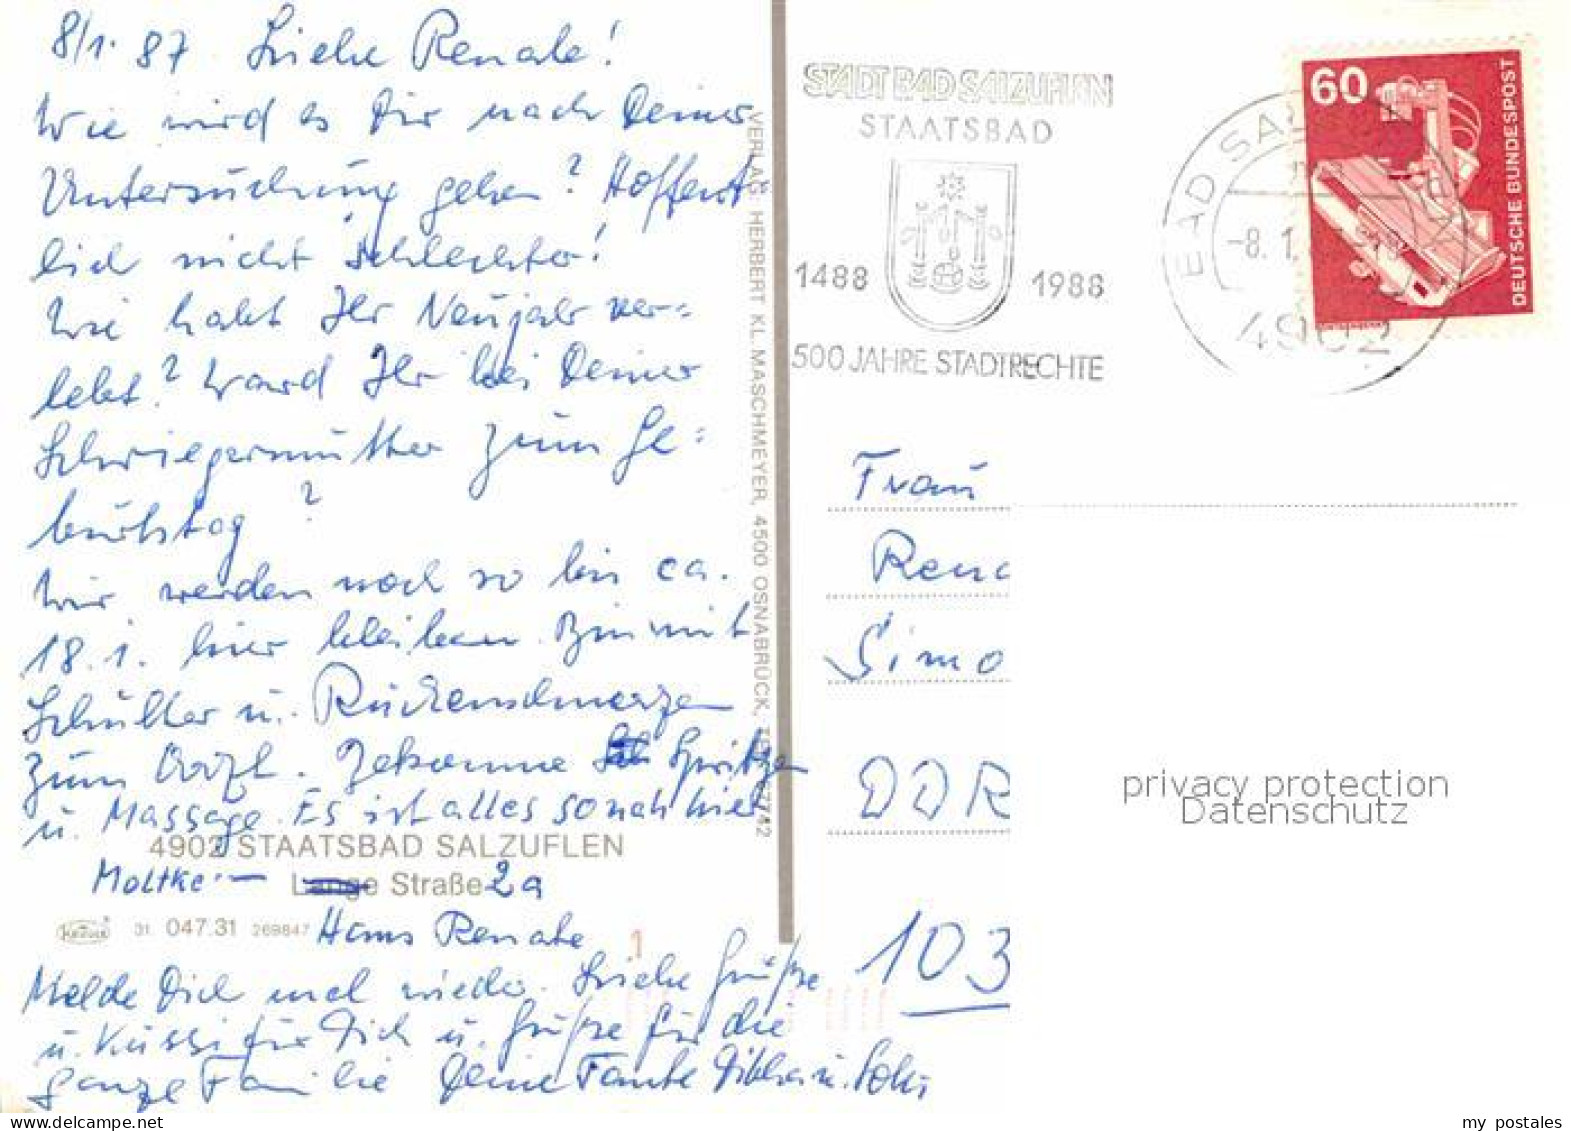 8/1. 87 Liebe Renate!
Wie wird es Dir nach Deiner
Untersuchung gehen? Hoffent
lich nicht schlechter!
Wie habt Ihr Neujahr ver-
lebt? Ward Ihr bei Deiner
Schwiegermutter zum Ge-
burtstag?
Wir werden noch so bin ca.
18.1. hier bleiben. Bin mit
Schulter u. Rückenschmerzen
zum Arzt. Bekomme Spritzen
u. Massage. Es ist alles so nah hier
4902 STAATSBAD SALZUFLEN
Moltke- Lange Straße 2a
Krüger 31 047.31 269847 Haus Renate
Melde Dich mal wieder. Liebe Grüße
u. Küssi für Dich u. Grüße für die
ganze Familie Deine Tante u.
VERLAG: HERBERT KL. MASCHMEYER, 4500 OSNABRÜCK,
1
STADT BAD SALZUFLEN
STAATSBAD
1488 1988
500 JAHRE STADTRECHTE
BAD SALZUFLEN
-8.1.
4902
60
DEUTSCHE BUNDESPOST
Frau
Rena
Simo
DDR
103
privacy protection
Datenschutz
my_postales